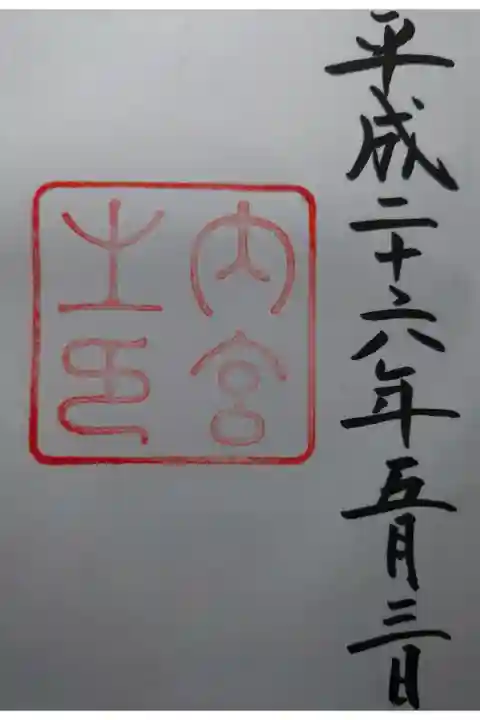 平成二十六年五月三日
内宮
之印